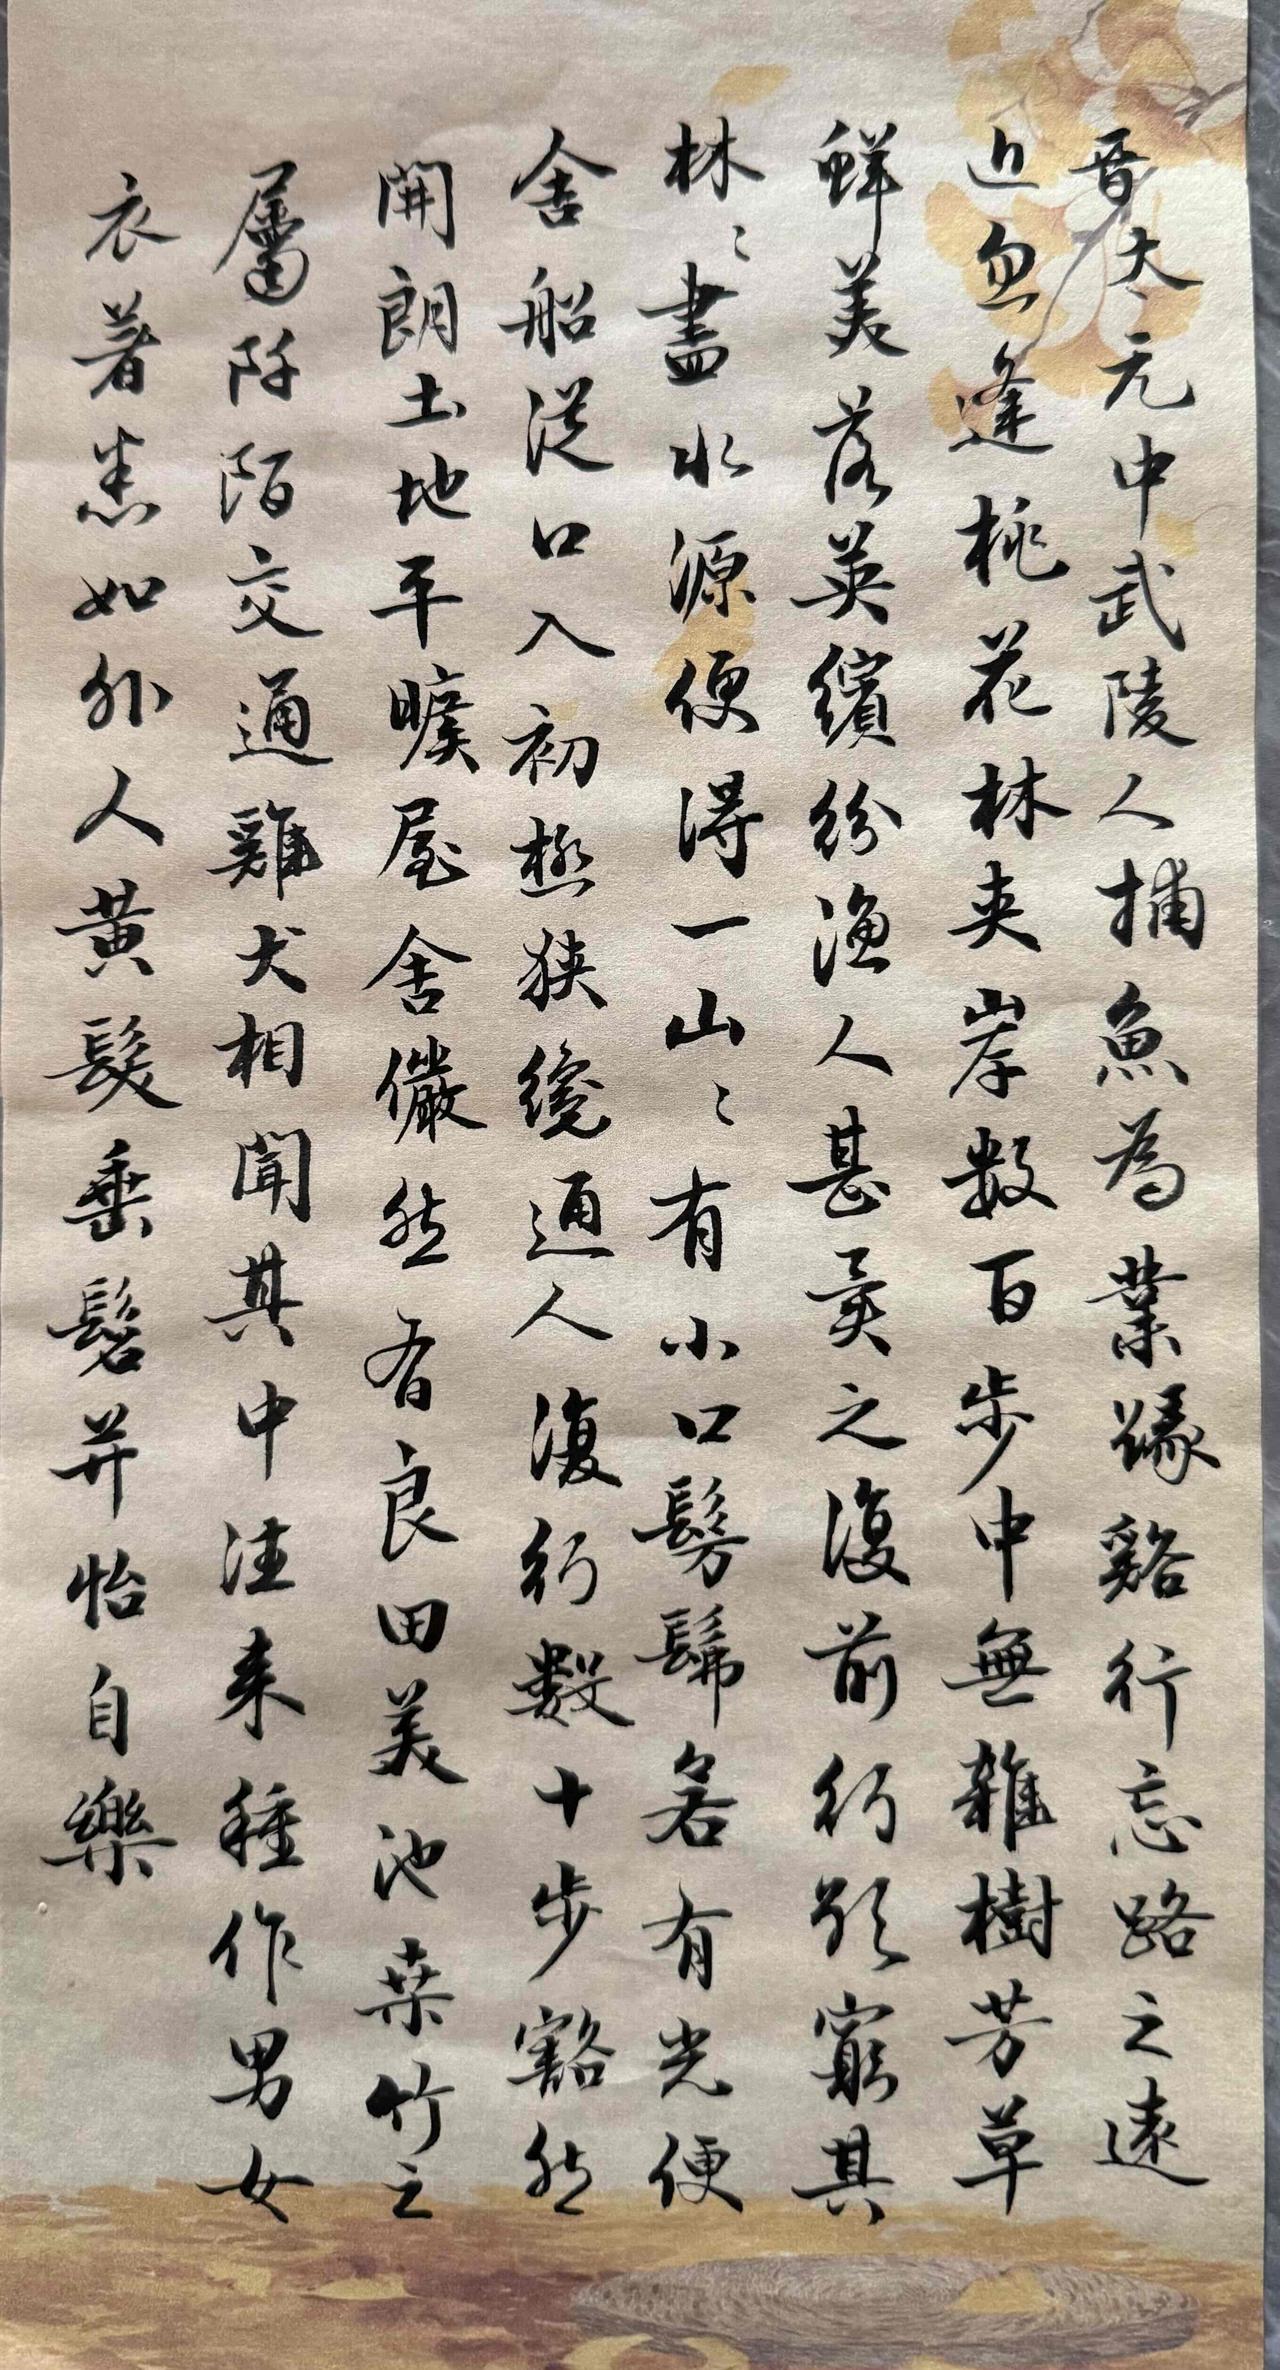 晉太元中武陵人捕魚為業緣谿行忘路之遠
近忽逢桃花林夾岸數百步中無雜樹芳草
鮮美落英繽紛漁人甚異之復前行欲窮其
林〻盡水源便得一山〻有小口髣髴若有光便
舍船從口入初極狹纔通人復行數十步豁然
開朗土地平曠屋舍儼然有良田美池桑竹之
屬阡陌交通雞犬相聞其中往來種作男女
衣著悉如外人黃髮垂髫并怡自樂